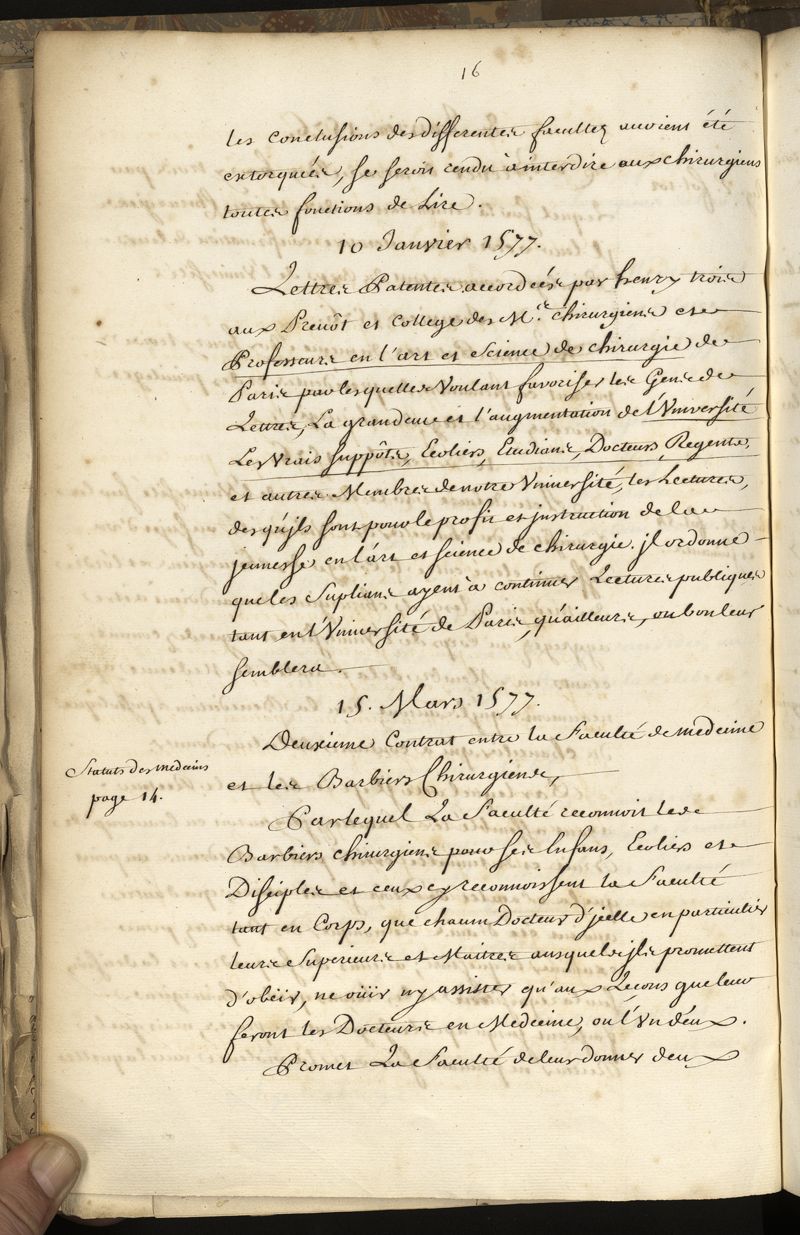 16
les conclusions des differentes facultez avoient été
extorquées, se seroit rendu à interdire aux chirurgiens
toutes fonctions de Lire.
10 Janvier 1577.
Lettres Patentes accordées par henry trois
aux Prevôt et College des M.es chirurgiens et
Professeurs en l'art et Science de chirurgie de
Paris par lesquelles Voulant favoriser les Gens de
Lettres, La grandeur et l'augmentation de l'Université
Les Vrais suppôts, Ecoliers, Etudians, Docteurs, Regents,
et autres Membres de notre Université, les Lectures,
des qu'jls sont pour le profit et jnstruction de la
jeunesse en l'art et science de chirurgie. jl ordonne
que les Suplians ayent à continuer Lectures publiques
tant en l'Université de Paris, qu'ailleurs, ou bon leur
semblera.
15. Mars 1577.
Deuxieme Contrat entre la Faculté de medecine
et les Barbiers Chirurgiens,
Statuts des medecins
page 14.
Par lequel La Faculté reconnoit les
Barbiers chirurgiens pour ses Enfans, Ecoliers et
Disciples et ceux cy reconnoissent la Faculté
tant en Corps, que chacun Docteur d'jcelle en particulier
leurs Superieurs et Maitres ausquels jls promettent
d'obéir, ne oüir ny assister qu'aux Leçons que leur
feront les Docteurs en Medecine, ou l'Un d'eux.
Promet La Faculté de leur donner deux